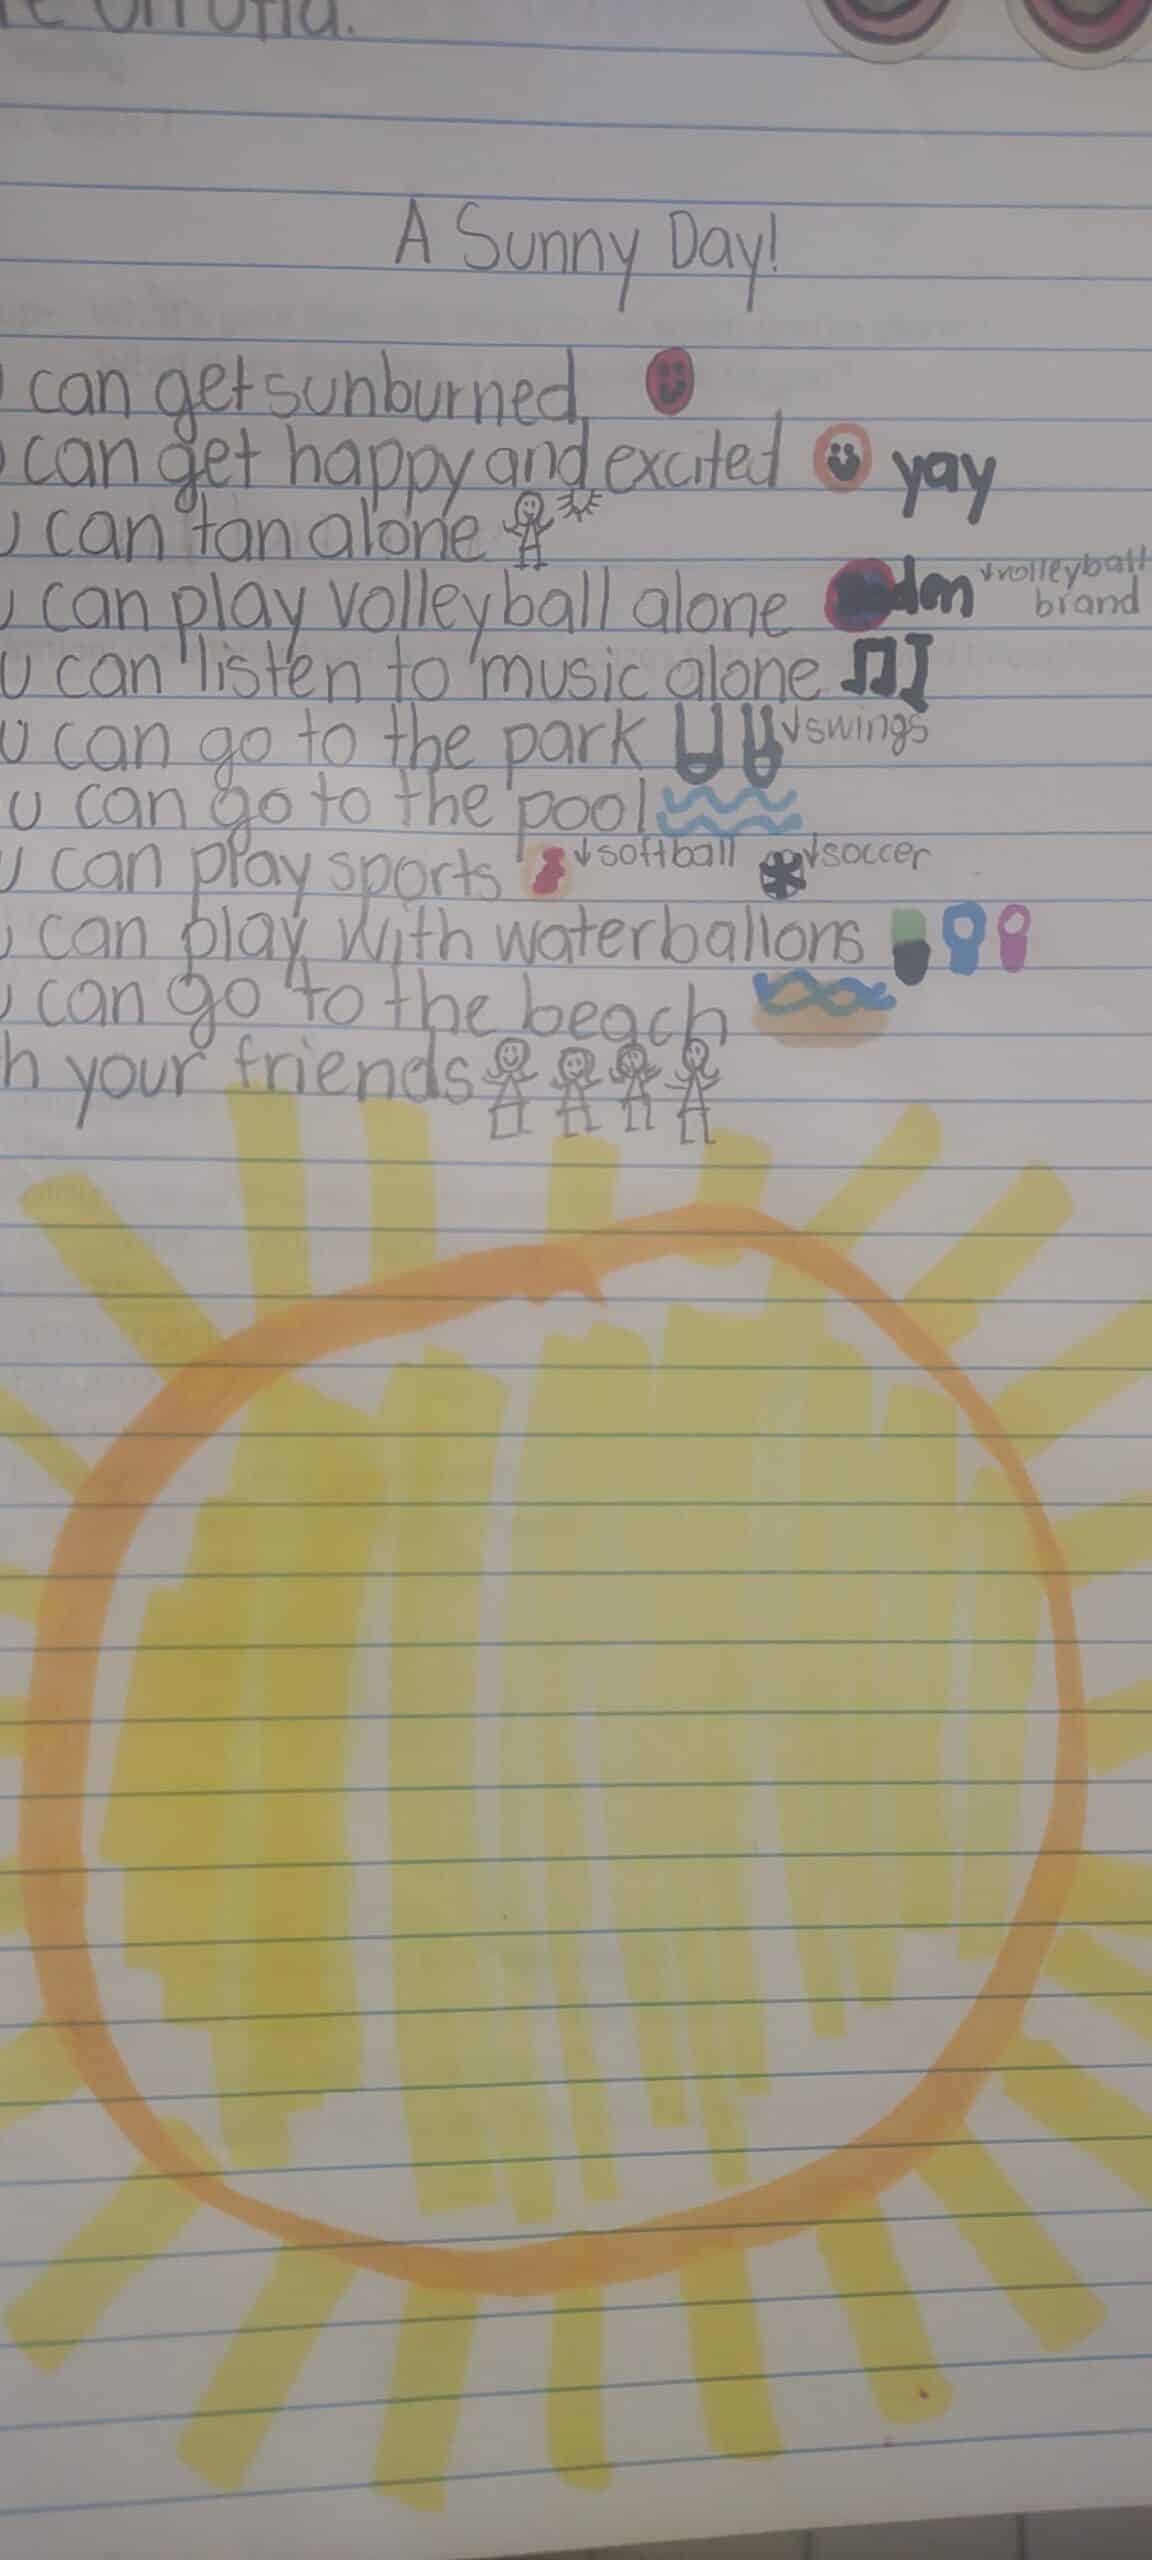 A Sunny Day!
can get sunburned
can get happy and excited yay
u can tan alone
u can play volleyball alone den volleyball brand
u can listen to music alone
u can go to the park swings
u can go to the pool
u can play sports softball soccer
u can play with waterballons
u can go to the beach
h your friends